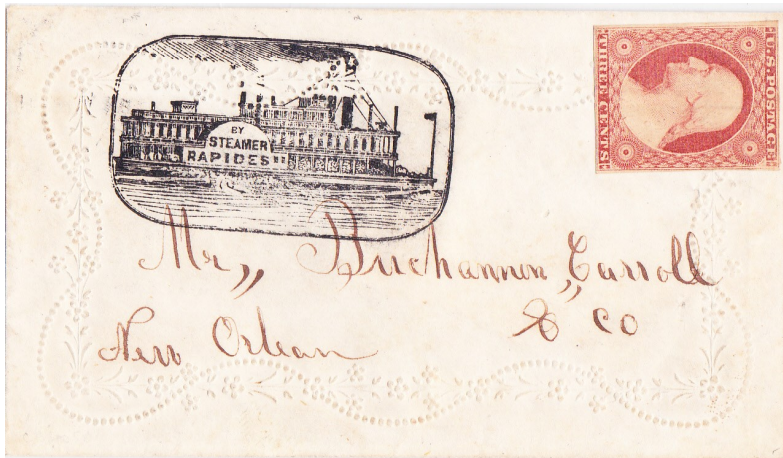 BY
STEAMER
RAPIDES
U.S. POSTAGE
THREE CENTS
Mr,, Buchannon,, Carroll
& CO
New Orlean